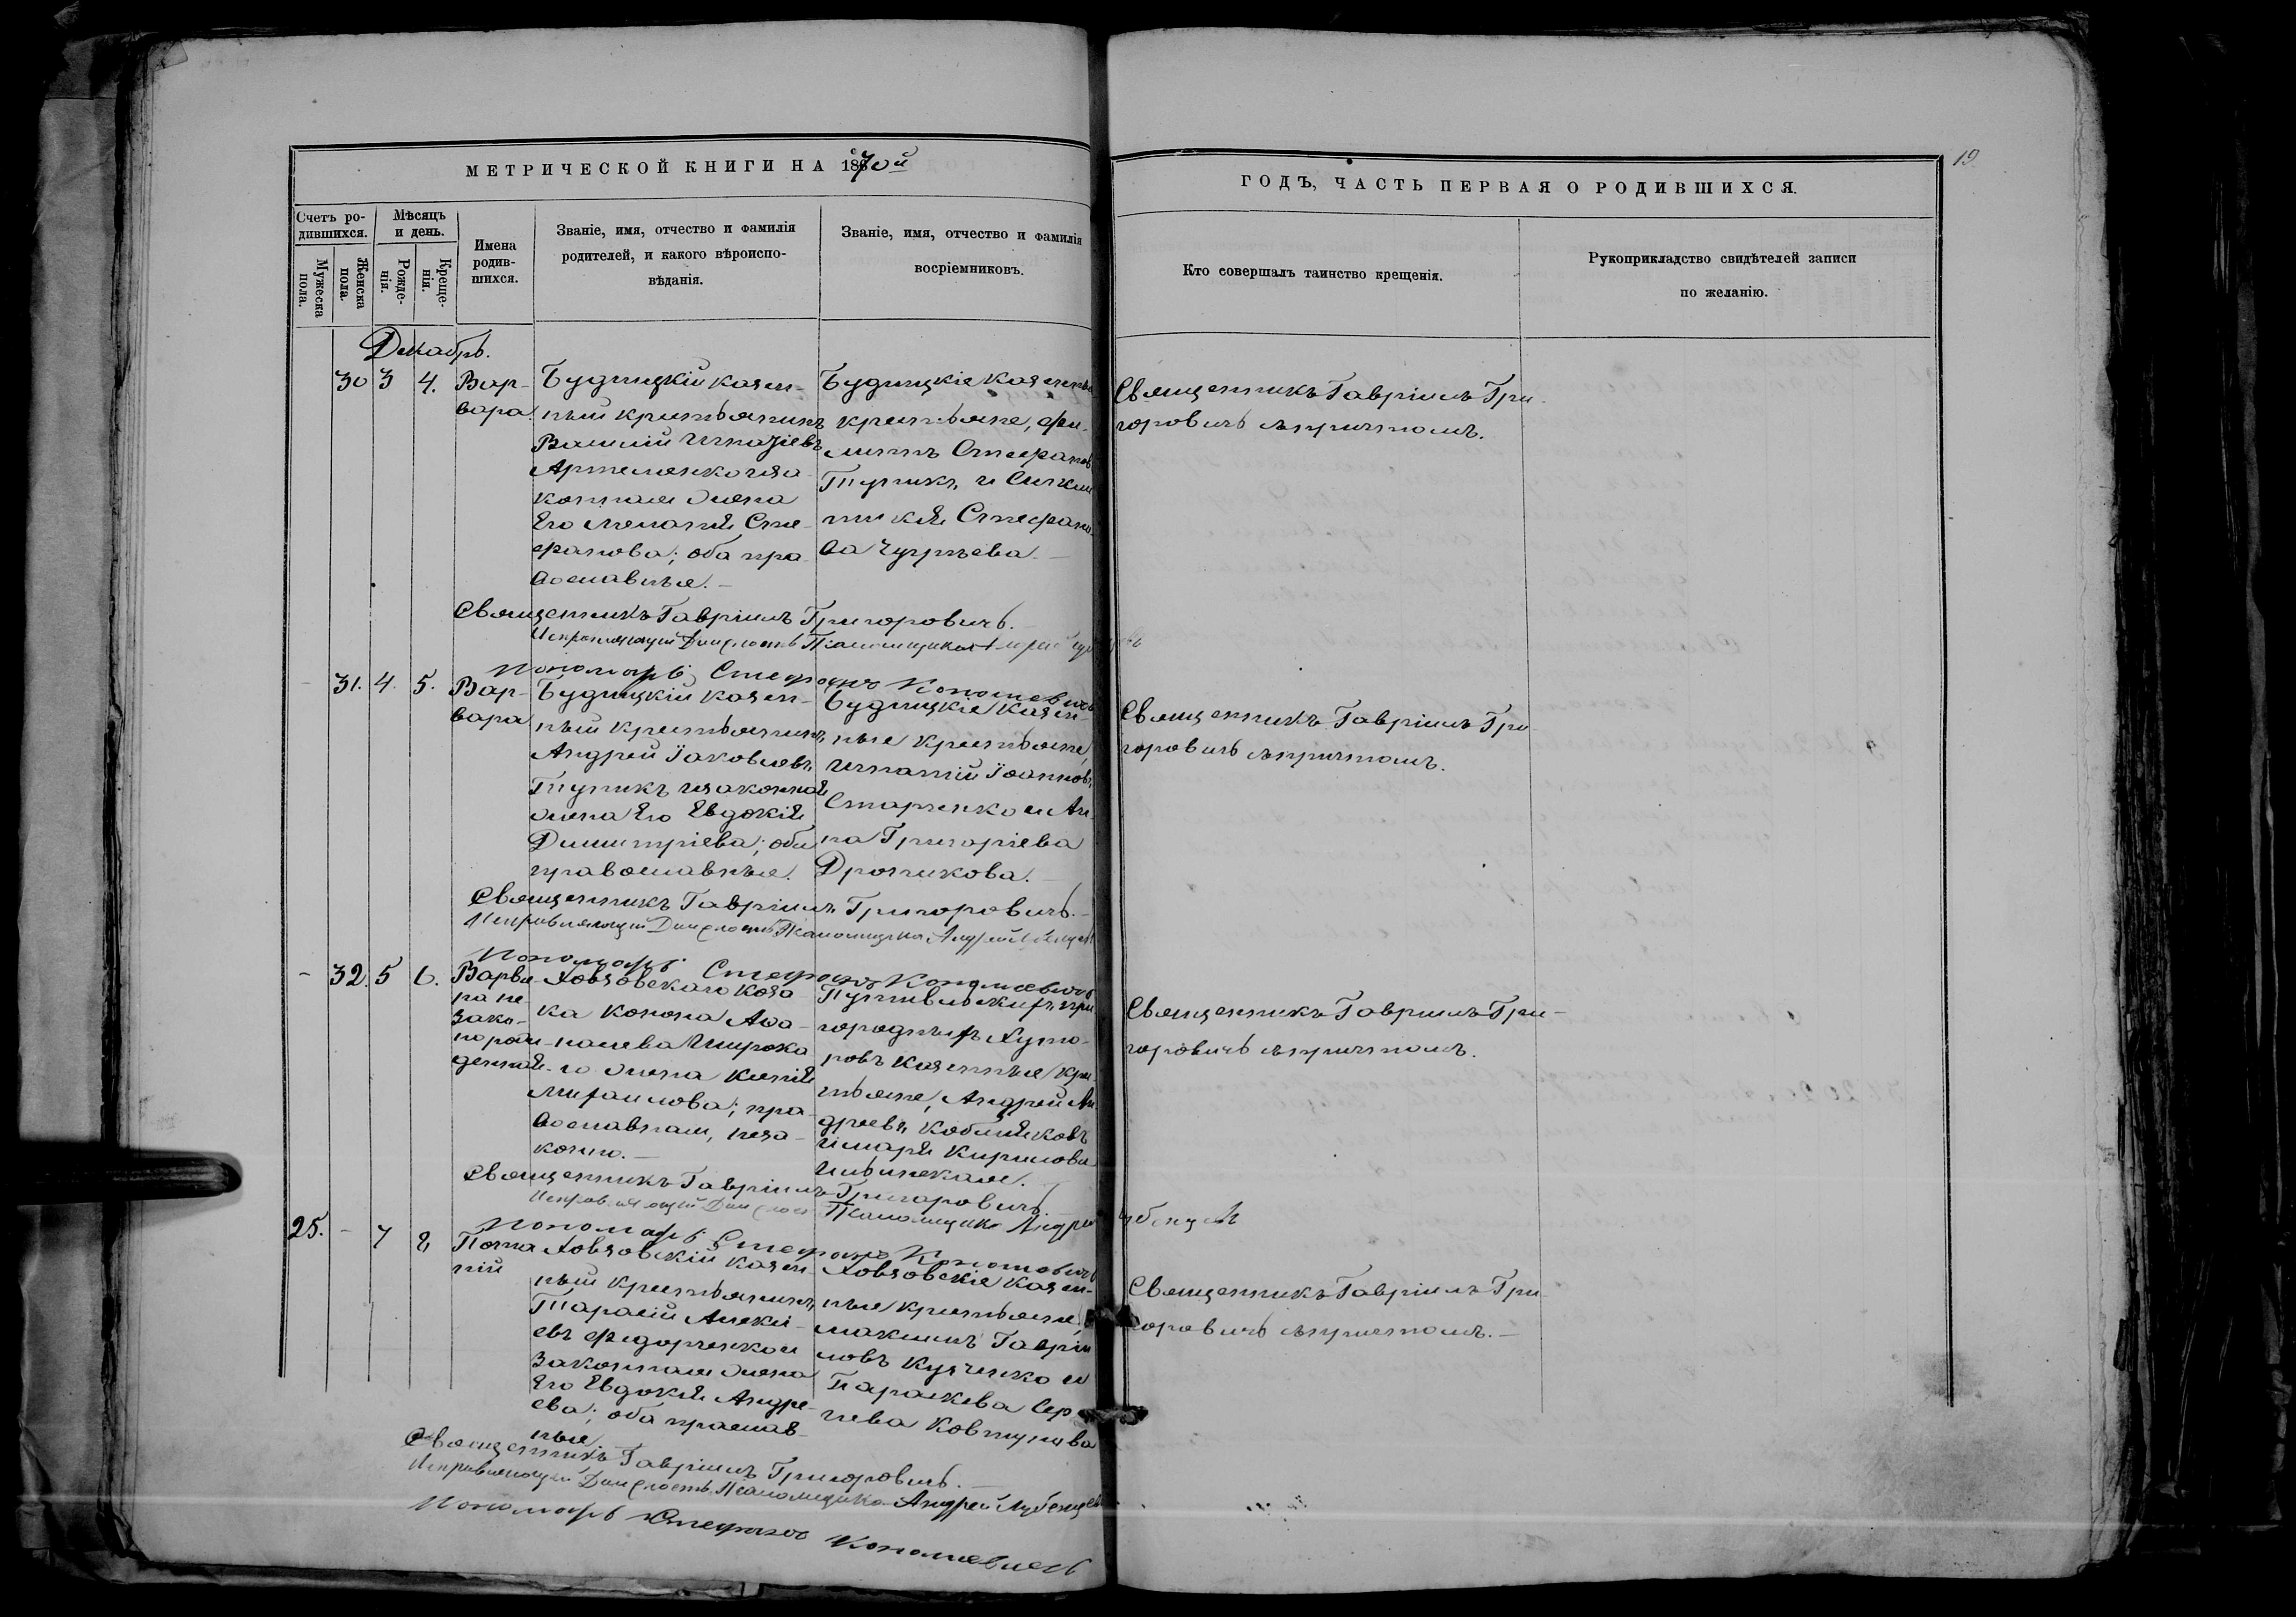 МЕТРИЧЕСКОЙ КНИГИ НА 1870й
ГОДЪ, ЧАСТЬ ПЕРВАЯ О РОДИВШИХСЯ.
19
Счетъ ро-
дившихся.
Мужеска
пола.
Женска
пола.
Мѣсяцъ
и день.
Рожде-
нія.
Креще-
нія.
Имена
родив-
шихся.
Званіе, имя, отчество и фамилія
родителей, и какого вѣроиспо-
вѣданія.
Званіе, имя, отчество и фамилія
восріемниковъ.
Кто совершалъ таинство крещенія.
Рукоприкладство свидѣтелей записи
по желанію.
Декабрь.
30 3 4.
Вар-
вара
Будищкій казен-
ный крестьянинъ
Василій Игнатіевъ
Артеменко и за-
конная жена
Его Меланія Сте-
фанова; оба пра-
вославные.-
Будищкіе казенные
крестьяне, Фи-
липпъ Стефановъ
Тупикъ, и Синкли-
тикія Стефано-
ва Чуприева.-
Священникъ Гавріилъ Гри-
горовичъ съ причтомъ.
Священникъ Гавріилъ Григоровичъ.-
Исправляющій Должность Псаломщика Андрей
Пономарь Стефанъ Кононевичъ
- 31. 4. 5.
Вар-
вара
Будищкій казен-
ный крестьянинъ,
Андрей Іаковлевъ
Тупикъ и законная
жена Его Евдокія
Димитріева; оба
православные.
Будищкіе казен-
ные крестьяне,
Игнатій Іоанновъ
Старченко и Ан-
на Григоріева
Дроникова.-
Священникъ Гавріилъ Гри
горовичъ съ причтомъ.
Священникъ Гавріилъ Григоровичъ.-
Исправляющій Должность Псаломщика Андрей Лубенцевъ
Пономарь Стефанъ Кононевичъ
- 32. 5 6.
Варва-
ра не-
зако-
норож-
денная-
Ховзовскаго коза-
ка Конона Афа-
насьева Широка-
го жена Ксенія
Михаилова; пра-
вославная, неза-
конно.-
Путивльскихъ при
городныхъ Хуто-
ровъ казенные кре-
стьяне, Андрей Ан-
дреевъ Кобляковъ
и Марія Кирилова
Священникъ Гавріилъ Гри-
горовичъ съ причтомъ.
Священникъ Гавріилъ Григоровичъ.-
Исправляющій Должность Псаломщика Андрей Лубенцевъ
Пономарь Стефанъ Кононевичъ
25. - 7 8
Ховзовскій казен-
ный крестьянинъ,
Тарасій Алексі-
евъ Федорченко и
законная жена
Его Евдокія Андре-
ева; оба православ-
ные
Ховзовскіе казен-
ные крестьяне,
Максимъ Гаврии-
ловъ Кученко и
Параскева Сер-
гіева Ковтунова
Священникъ Гавріилъ Гри
горовичъ съ причтомъ.-
Священникъ Гавріилъ Григоровичъ.-
Исправляющій Должность Псаломщика Андрей Лубенцевъ
Пономарь Стефанъ Кононевичъ